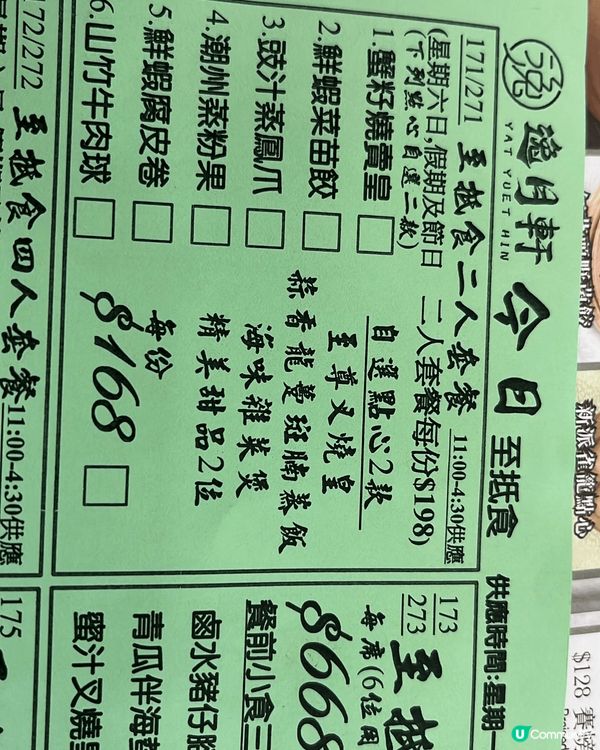 逸月軒
YAT YUET HIN
今日至抵食
供應時間:星期一
171/271 至抵食二人套餐 11:00-4:30供應
(星期六日,假期及節日 二人套餐每份$198)
(下列點心自選二款)
1.蟹籽燒賣皇
2.鮮蝦菜苗餃
3.豉汁蒸鳳爪
4.潮州蒸粉果
5.鮮蝦腐皮卷
6.山竹牛肉球
自選點心2款
至尊叉燒皇
蒜香龍躉斑腩蒸飯
海味雜菜煲
精美甜品2位
每份
$168
172/272 至抵食四人套餐 11:00-4:30供應
173
273
至抵
每席(6位用
$668
餐前小食三
鹵水豬仔腳
青瓜伴海蜇
蜜汁叉燒皇
175
$128
U